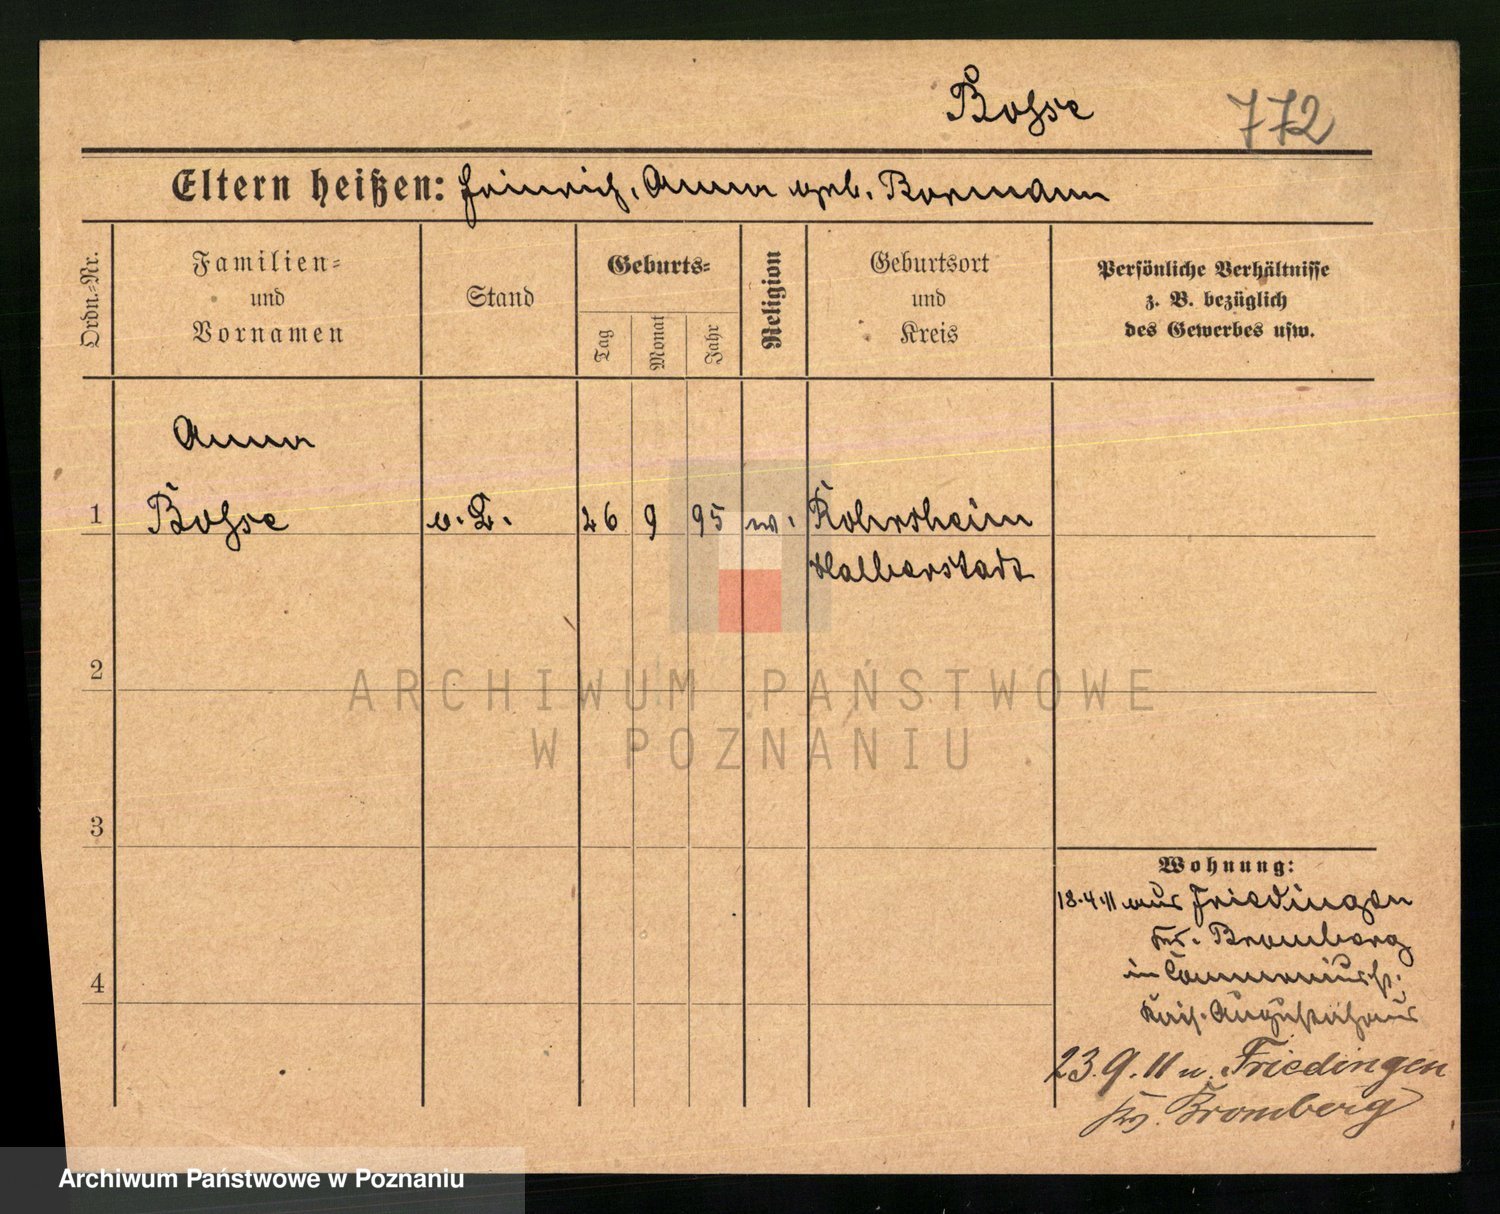 Bosse 772
Eltern heißen: Heinrich, Anna geb. Bormann
Ordn.=Nr.
Familien=
und
Vornamen
Stand
Geburts=
Tag
Monat
Jahr
Religion
Geburtsort
und
Kreis
Persönliche Verhältnisse
z. B. bezüglich
des Gewerbes usw.
Anna
1 Bosse o. B. 26 9 95 ev. Rohrsheim
Halberstadt
2
ARCHIWUM PAŃSTWOWE
W POZNANIU
3
4
Wohnung:
18.4.11 aus Friedingen
Kr. Bromberg
in
Kais. Augustahaus
23.9.11 n. Friedingen
Kr. Bromberg
Archiwum Państwowe w Poznaniu